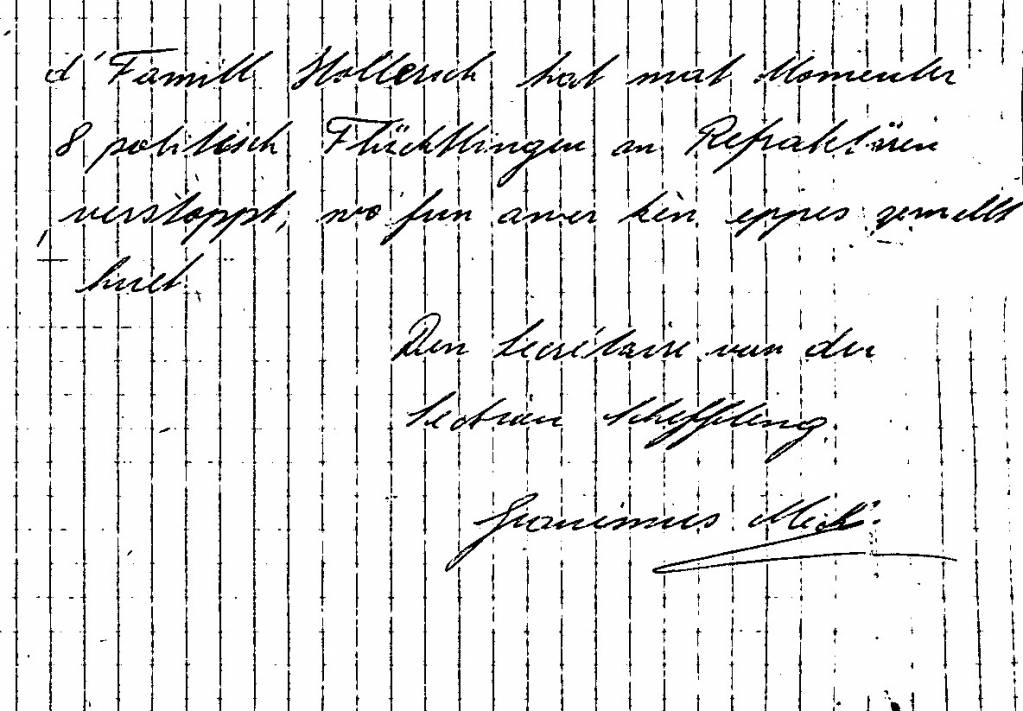 d'Famill Hollerich hat mat Momenter
8 politisch Flüchtlingen an Refraktären
verstoppt, wo fun awer kèn eppes gemellt
huet.
Den Secrétaire vun der
Sectioun Scheffleng.
Mich.